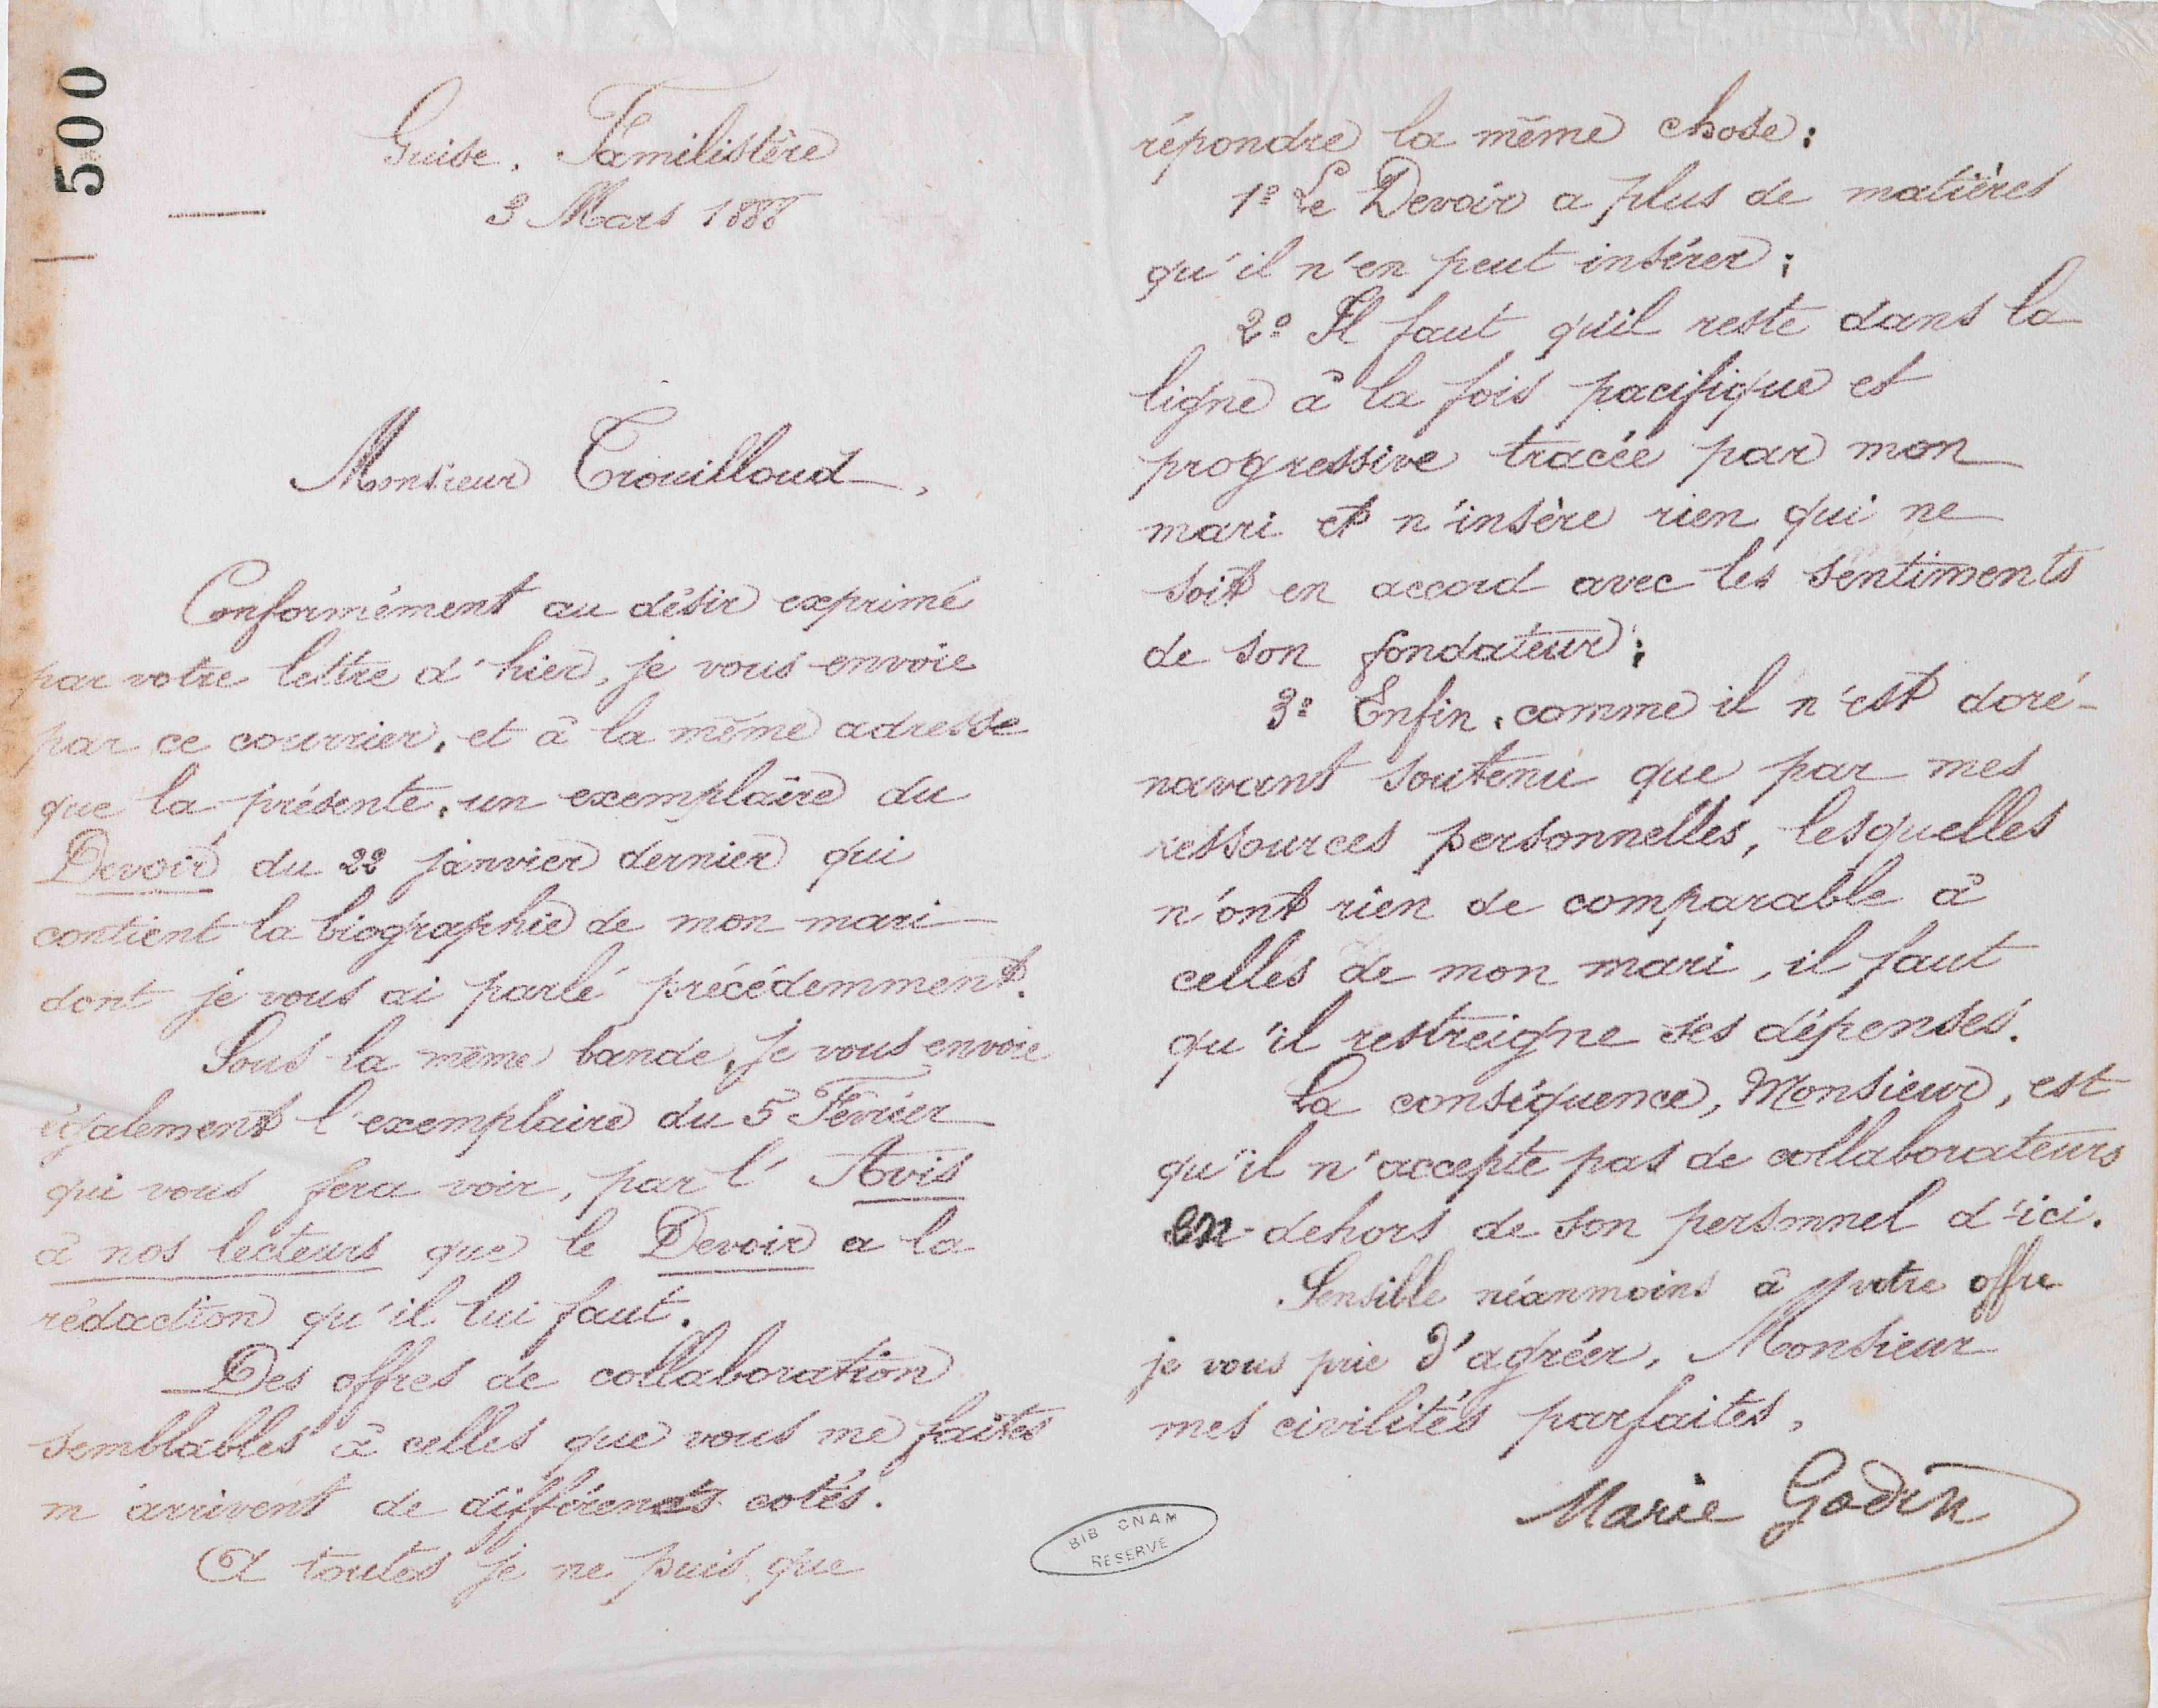 500
Guise. Familistère
3 Mars 1888
Monsieur Trouilloud,
Conformément au désir exprimé
par votre lettre d'hier, je vous envoie
par ce courrier, et à la même adresse
que la présente, un exemplaire du
Devoir du 22 janvier dernier qui
contient la biographie de mon mari
dont je vous ai parlé précédemment.
Sous la même bande, je vous envoie
également l'exemplaire du 5 Février
qui vous fera voir, par l'Avis
à nos lecteurs que le Devoir a la
rédaction qu'il lui faut.
Des offres de collaboration
semblables à celles que vous me faites
m'arrivent de différents cotés.
A toutes je ne puis que
répondre la même chose:
1º Le Devoir a plus de matières
qu'il n'en peut insérer;
2º Il faut qu'il reste dans la
ligne à la fois pacifique et
progressive tracée par mon
mari et n'insère rien qui ne
soit en accord avec les sentiments
de son fondateur;
3º Enfin, comme il n'est doré-
navant soutenu que par mes
ressources personnelles, lesquelles
n'ont rien de comparable à
celles de mon mari, il faut
qu'il restreigne ses dépenses.
La conséquence, Monsieur, est
qu'il n'accepte pas de collaborateurs
en-dehors de son personnel d'ici.
Sensible néanmoins à votre offre
je vous prie d'agréer, Monsieur
mes civilités parfaites,
Marie Godin
BIB CNAM
RESERVE